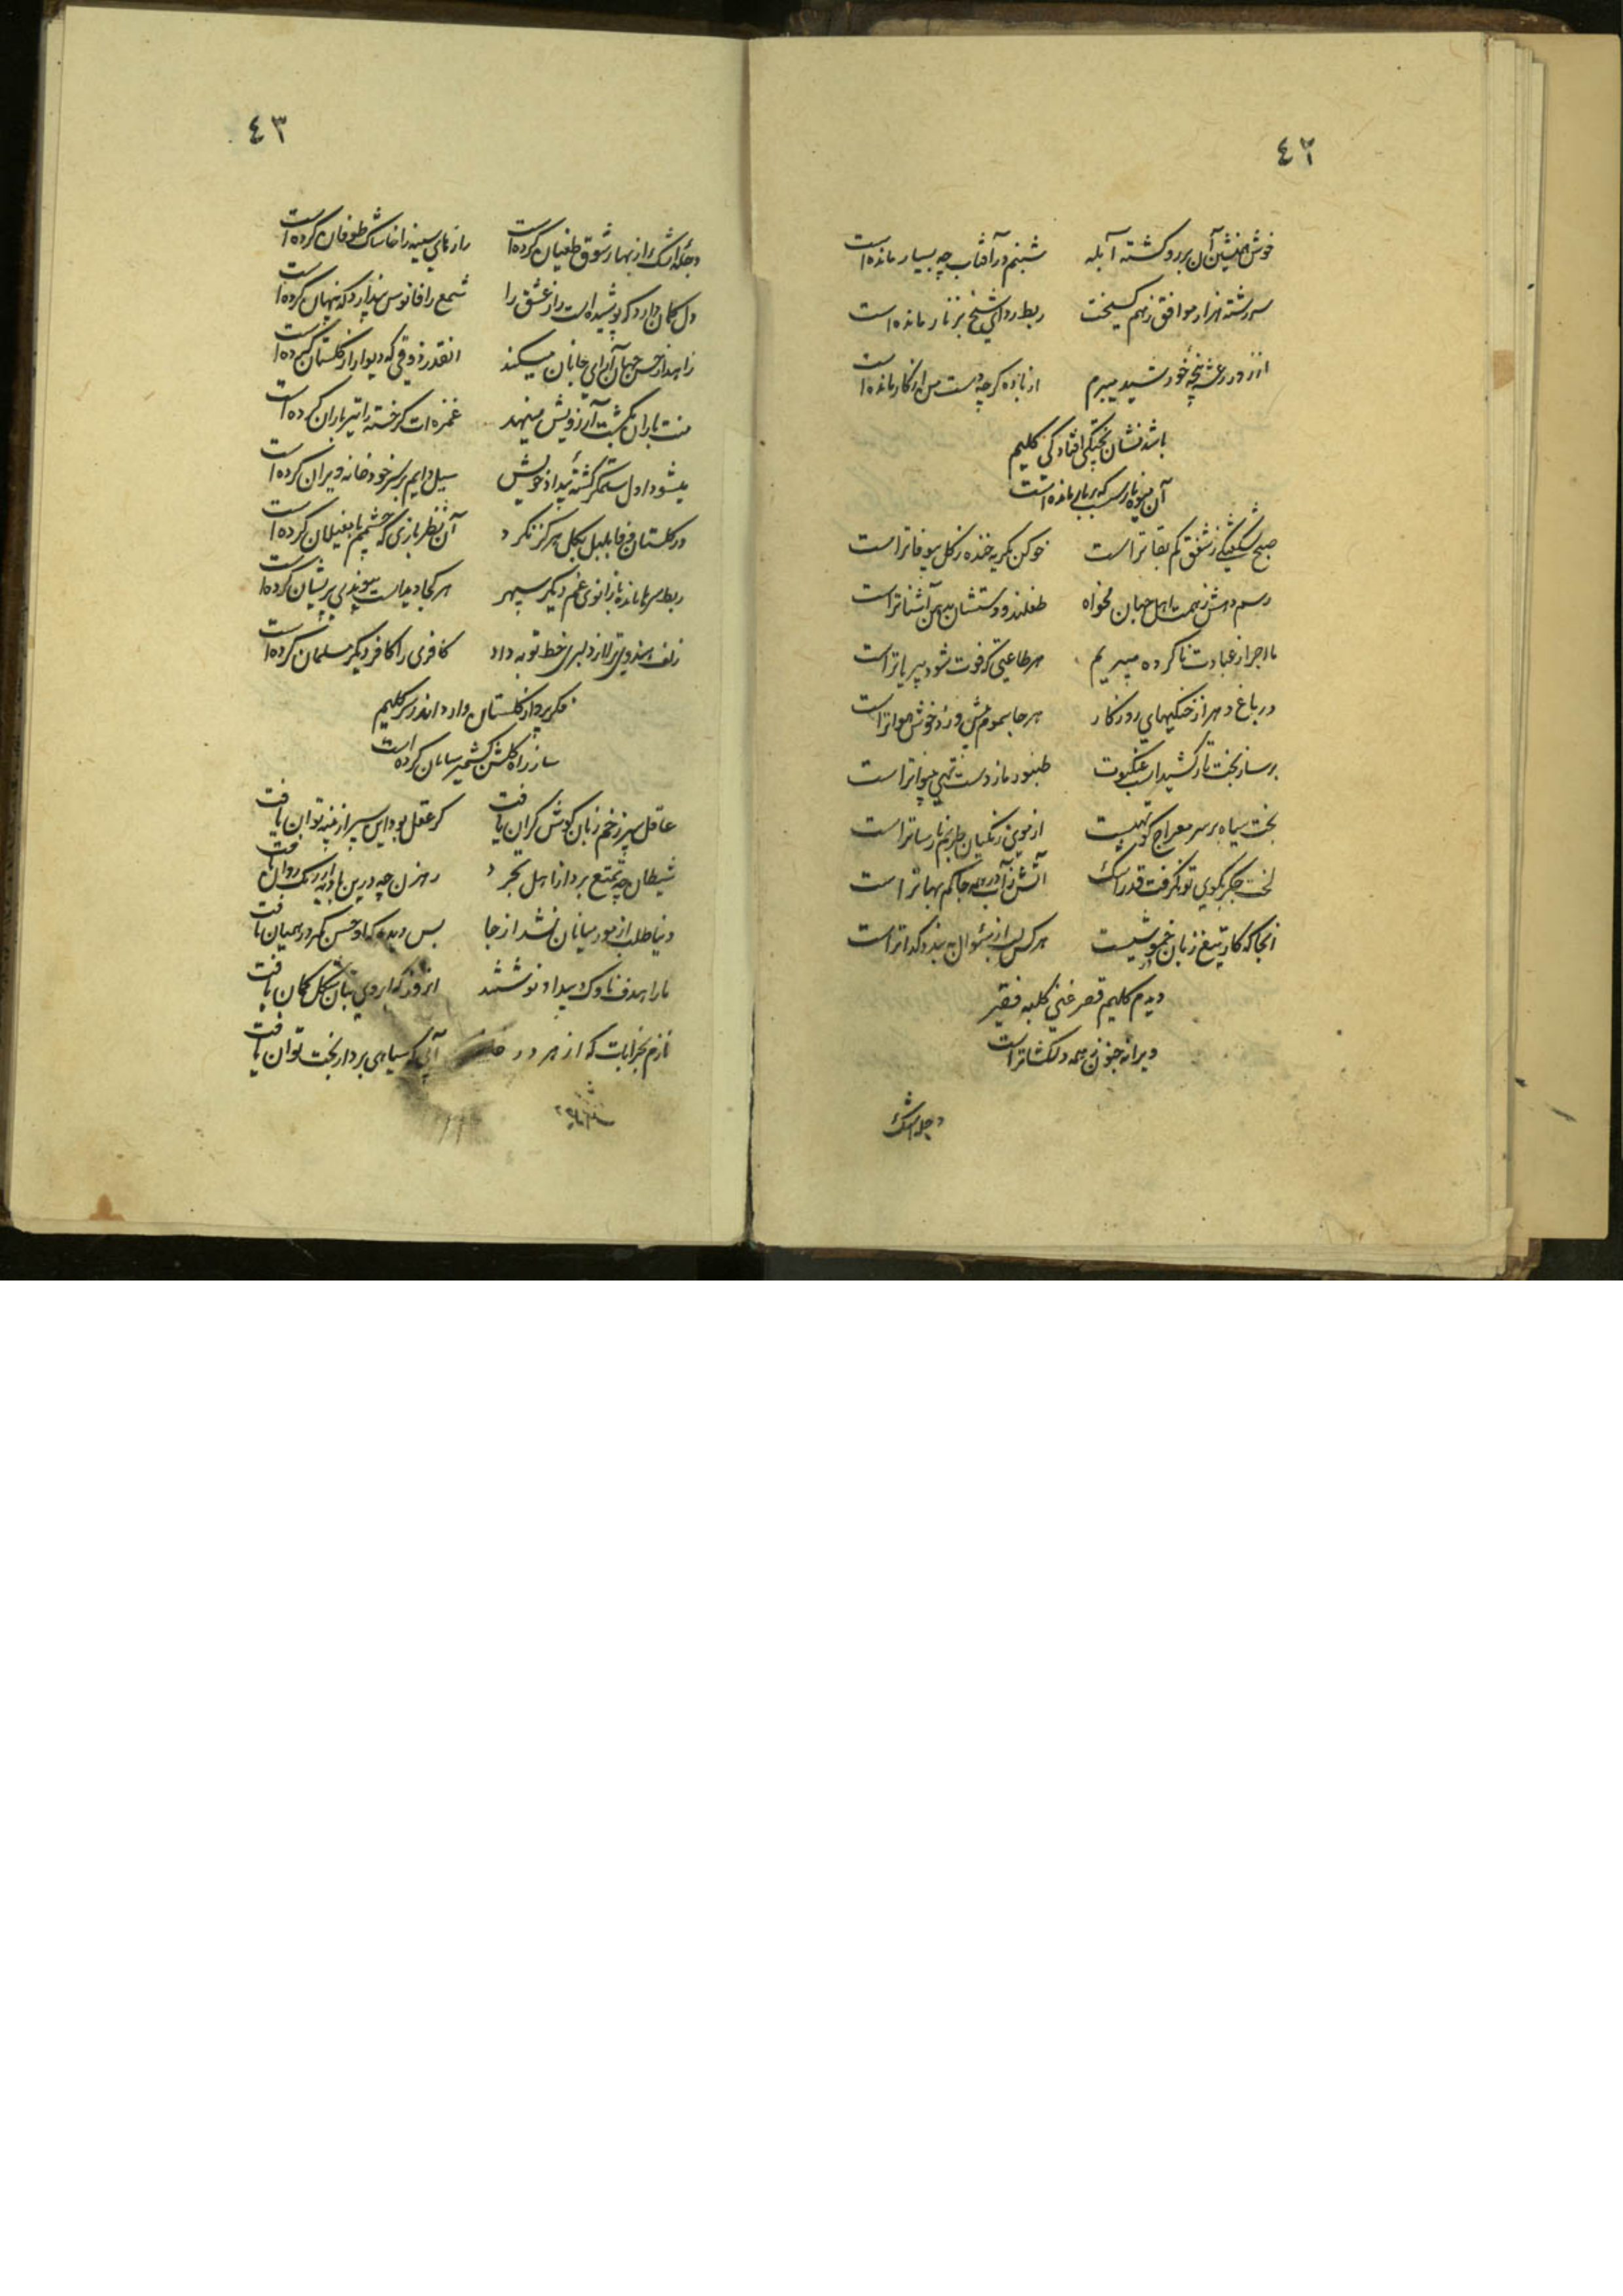 ٤٢
خوش همنشین آن بر رو گشته آبله شبنم در آفتاب چه بسیار مانده است
سررشته هزار موافق ز هم گسیخت ربط ردای شیخ بزنار مانده است
از زور رعشه پنجه خورشید میبرم از باده گرچه دست من از کار مانده است
باشد نشان پختگی افتادگی کلیم
آن میوه نارس که بر بار مانده است
صبح شکفتگی ز شفق کم بقاتر است خو کن بگریه خنده ز گل بیوفاتر است
رسم دهش ز همت اهل جهان مخواه طفلند و دستشان بدهن آشناتر است
ما اجر از عبادت ناکرده میبریم هر طاعتی که فوت شود بیریاتر است
در باغ دهر از خنکیهای روزگار هر جا سموم بیش وزد خوش هواتر است
بر ساز بخت تار کشیدست عنکبوت طنبور ما ز دست تهی بینواتر است
بخت سیاه بر سر معراج کوتهیست از موی زنگیان طربم نارساتر است
لخت جگر بکوی تو نگرفت قدر اشک آتش ز آب در همه جا کم بهاتر است
انجا که کار تیغ زبان خموشیست هر کس لب از سئوال به بندد گداتر است
دیدم کلیم قصر غنی کلبه فقیر
ویرانه جنون ز همه دلگشاتر است
دجله اشک
٤٣
دجله اشک را ز بهار شوق طغیان کرده است رازهای سینه را خاشاک طوفان کرده است
دل گمان دارد که پوشیده است راز عشق را شمع را فانوس پندارد که پنهان کرده است
زاهد از حسن جهان آرای جانان میکند انقدر ذوقی که دیوار از گلستان کرده است
منت باران بکشت آرزویش مینهد غمزه ات گر خسته را تیرباران کرده است
میشود اول ستمگر کشته بیداد خویش سیل دایم بر سر خود خانه ویران کرده است
در گلستان وفا بلبل بگل هرگز نکرد آن نظر بازی که چشمم با مغیلان کرده است
ربط سرها مانده با زانوی غم دیگر سپهر هر کجا دیداست پیوندی پریشان کرده است
زلف هندوی ترا از دلبری خط توبه داد کافری را کافر دیگر مسلمان کرده است
فکر پرواز گلستان دارد اندر سر کلیم
ساز راه گلشن کشمیر سامان کرده است
عاقل سپر زخم زبان گوش گران یافت گر عقل بود این سپر از پنبه توان یافت
شیطان چه تمتع برد از اهل تجرد رهزن چه درین بادیه از ریگ روان یافت
دنیا طلب از مور میانان نشد از جا بس دیده که او حسن کمر در همیان یافت
ما را هدف ناوک بیداد نوشتند انروز که ابروی بتان شکل کمان یافت
نازم بخرابات که از هر در آبی که سیاهی برد از بخت توان یافت